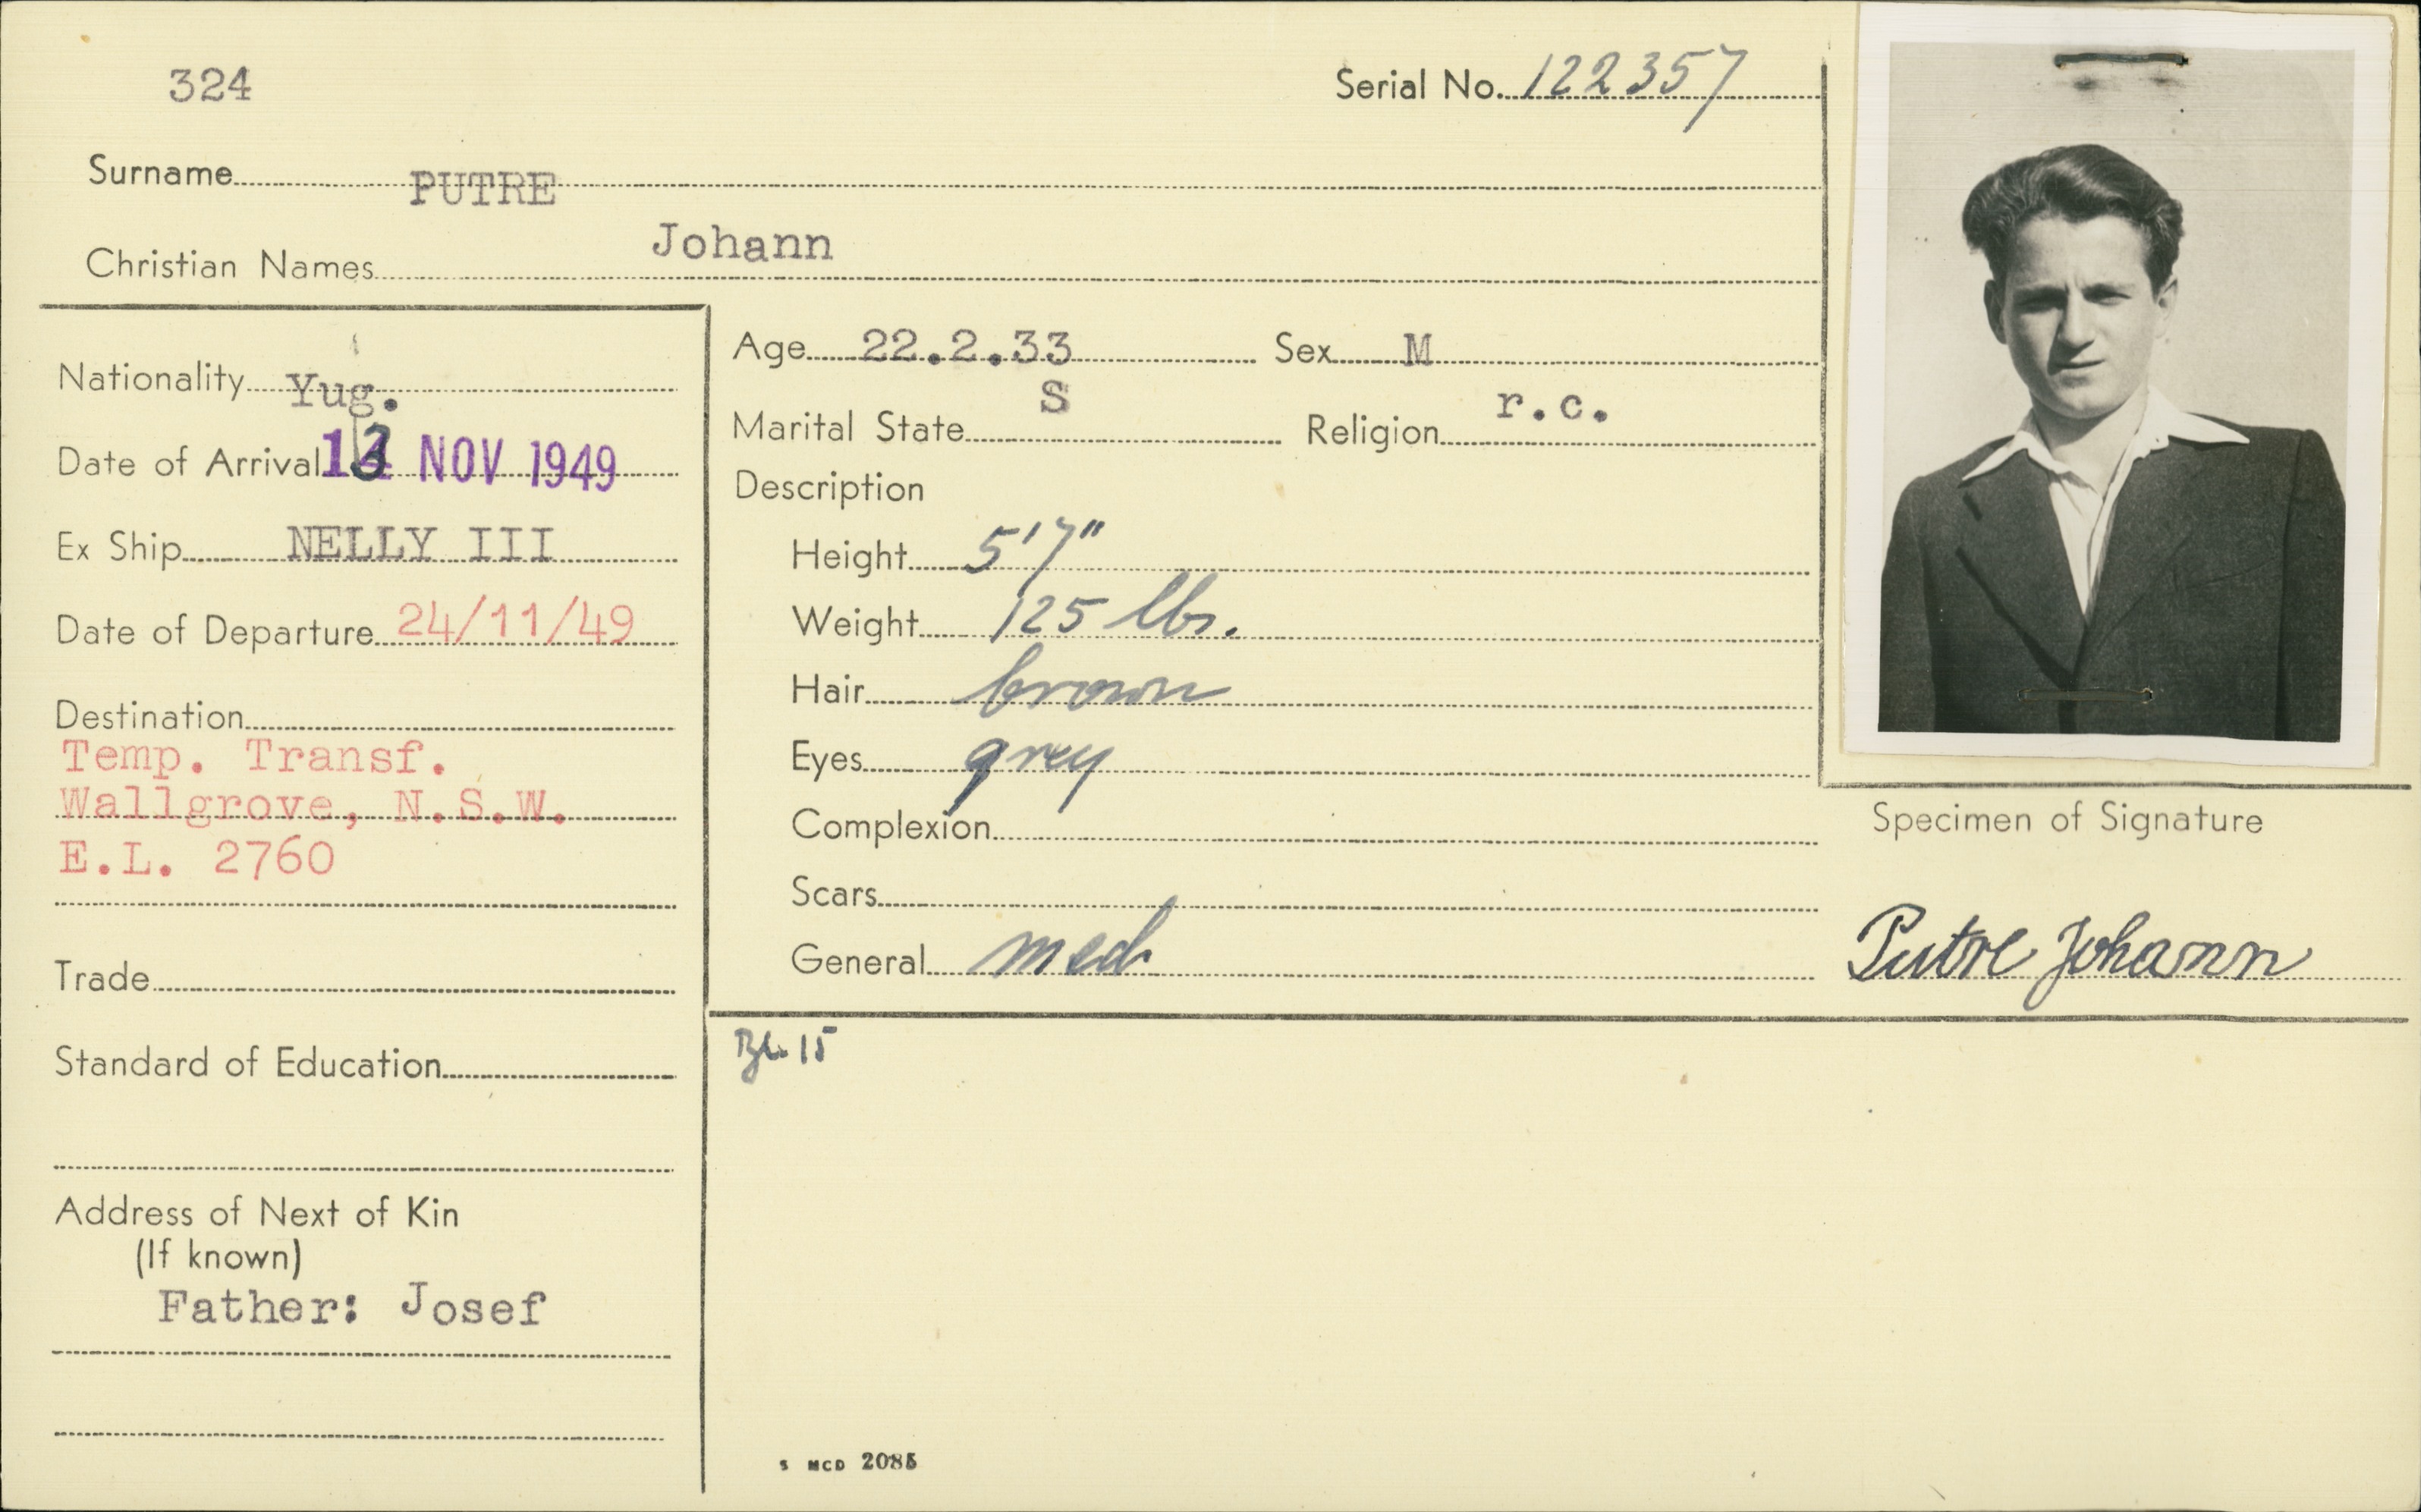 324
Serial No. 122357
Surname PUTRE
Christian Names Johann
Nationality Yug.
Date of Arrival 13 NOV 1949
Ex Ship NELLY III
Date of Departure 24/11/49
Destination
Temp. Transf.
Wallgrove, N.S.W.
E.L. 2760
Trade
Standard of Education
Address of Next of Kin
(If known)
Father: Josef
Age 22.2.33 Sex M
Marital State S Religion r.c.
Description
Height 5'7"
Weight 125 lbs.
Hair brown
Eyes grey
Complexion
Scars
General med
Specimen of Signature
Putre Johann
Bl. 15
S MCD 2085